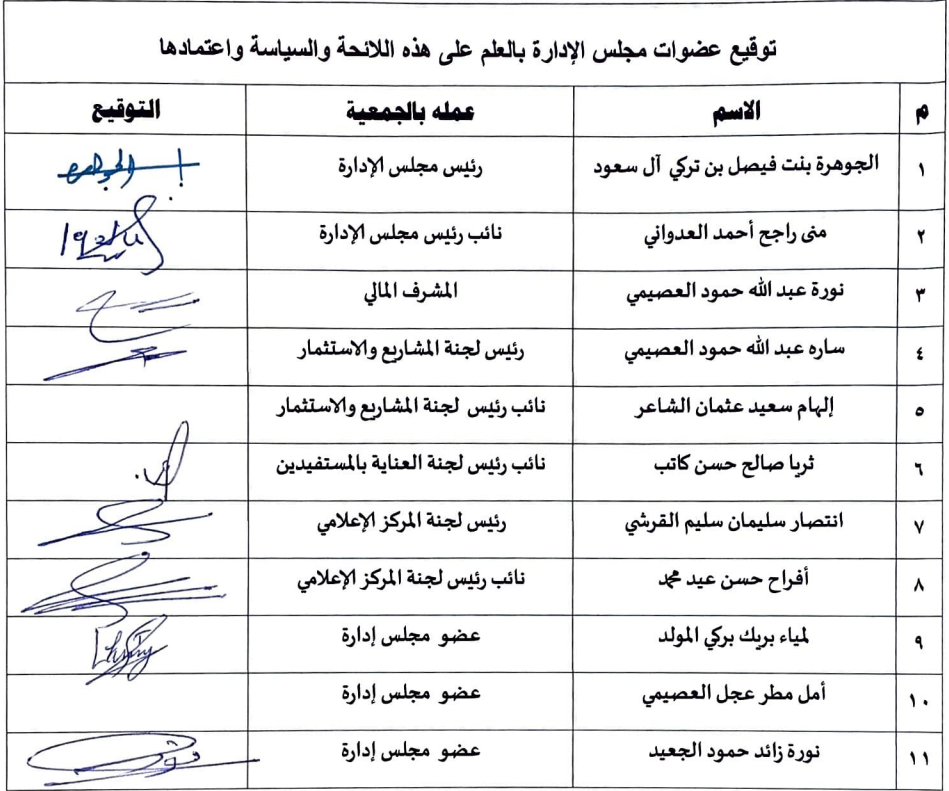 توقيع عضوات مجلس الإدارة بالعلم على هذه اللائحة والسياسة واعتمادها
م الاسم عمله بالجمعية التوقيع
١ الجوهرة بنت فيصل بن تركي آل سعود رئيس مجلس الإدارة
٢ منى راجح أحمد العدواني نائب رئيس مجلس الإدارة
٣ نورة عبد الله حمود العصيمي المشرف المالي
٤ ساره عبد الله حمود العصيمي رئيس لجنة المشاريع والاستثمار
٥ إلهام سعيد عثمان الشاعر نائب رئيس لجنة المشاريع والاستثمار
٦ ثريا صالح حسن كاتب نائب رئيس لجنة العناية بالمستفيدين
٧ انتصار سليمان سليم القرشي رئيس لجنة المركز الإعلامي
٨ أفراح حسن عيد محمد نائب رئيس لجنة المركز الإعلامي
٩ لمياء بريك بركي المولد عضو مجلس إدارة
١٠ أمل مطر عجل العصيمي عضو مجلس إدارة
١١ نورة زائد حمود الجعيد عضو مجلس إدارة